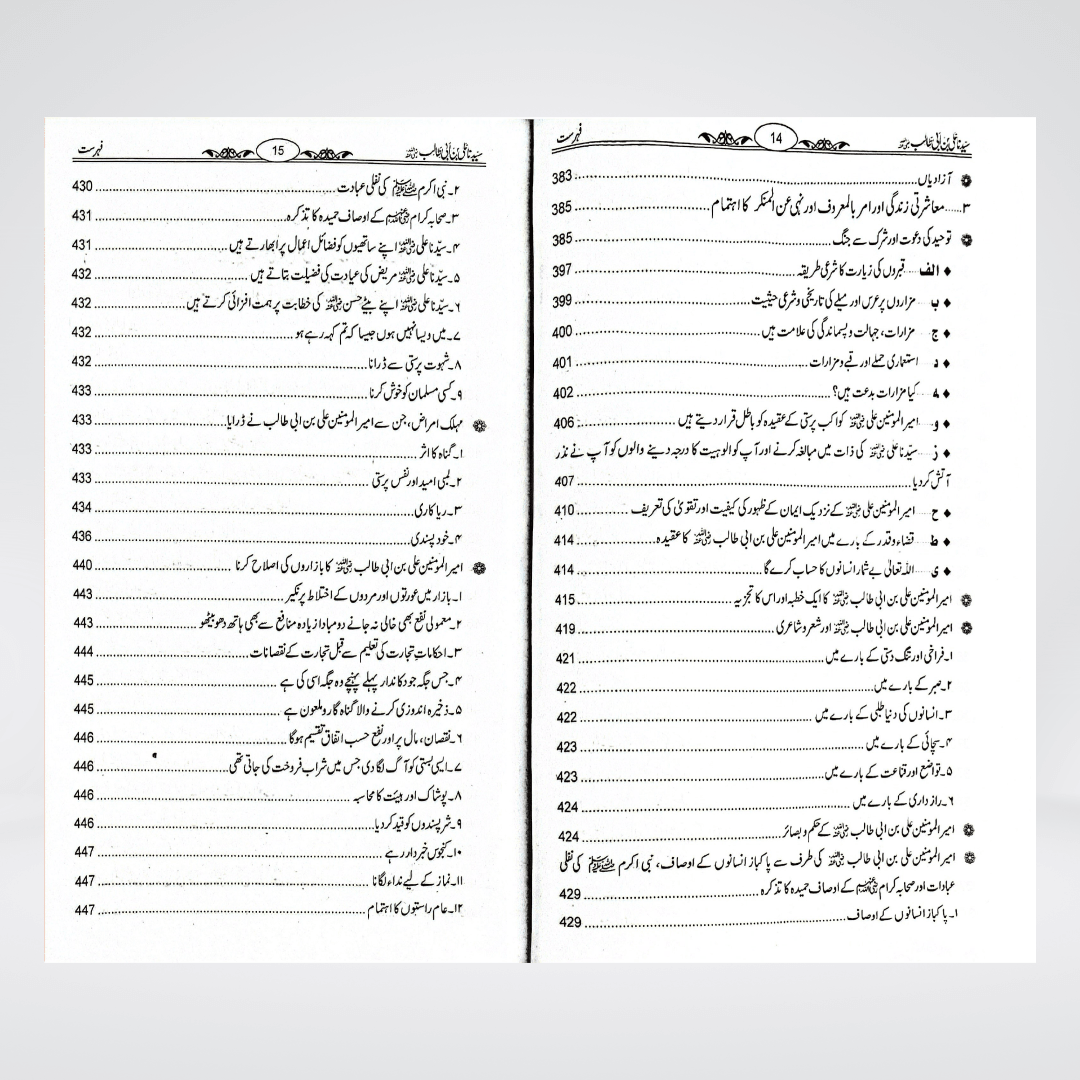 سیّدنا علی بن ابی طالب رضی اللہ عنہ 14 فہرست
آزادیاں 383
۳.....معاشرتی زندگی اور امر بالمعروف اور نہی عن المنکر کا اہتمام 385
توحید کی دعوت اور شرک سے جنگ 385
الف قبروں کی زیارت کا شرعی طریقہ 397
ب مزاروں پر عرس اور میلے کی تاریخی و شرعی حیثیت 399
ج مزارات، جہالت و پسماندگی کی علامت ہیں 400
د استعماری حملے اور قبے و مزارات 401
ہ کیا مزارات بدعت ہیں؟ 402
و امیر المومنین علی رضی اللہ عنہ کواکب پرستی کے عقیدہ کو باطل قرار دیتے ہیں 406
ز سیّدنا علی رضی اللہ عنہ کی ذات میں مبالغہ کرنے اور آپ کو الوہیت کا درجہ دینے والوں کو آپ نے نذر
آتش کر دیا 407
ح امیر المومنین علی رضی اللہ عنہ کے نزدیک ایمان کے ظہور کی کیفیت اور تقویٰ کی تعریف 410
ط قضاء و قدر کے بارے میں امیر المومنین علی بن ابی طالب رضی اللہ عنہ کا عقیدہ 414
ی اللہ تعالیٰ بے شمار انسانوں کا حساب کرے گا 414
امیر المومنین علی بن ابی طالب رضی اللہ عنہ کا ایک خطبہ اور اس کا تجزیہ 415
امیر المومنین علی بن ابی طالب رضی اللہ عنہ اور شعر و شاعری 419
۱۔ فراخی اور تنگ دستی کے بارے میں 421
۲۔ صبر کے بارے میں 422
۳۔ انسانوں کی دنیا طلبی کے بارے میں 422
۴۔ سچائی کے بارے میں 423
۵۔ تواضع اور قناعت کے بارے میں 423
۶۔ رازداری کے بارے میں 424
امیر المومنین علی بن ابی طالب رضی اللہ عنہ کے حکم و بصائر 424
امیر المومنین علی بن ابی طالب رضی اللہ عنہ کی طرف سے پاکباز انسانوں کے اوصاف، نبی اکرم ﷺ کی نفلی
عبادات اور صحابہ کرام رضی اللہ عنہم کے اوصاف حمیدہ کا تذکرہ 429
۱۔ پاکباز انسانوں کے اوصاف 429
سیّدنا علی بن ابی طالب رضی اللہ عنہ 15 فہرست
۲۔ نبی اکرم ﷺ کی نفلی عبادت 430
۳۔ صحابہ کرام رضی اللہ عنہم کے اوصاف حمیدہ کا تذکرہ 431
۴۔ سیّدنا علی رضی اللہ عنہ اپنے ساتھیوں کو فضائل اعمال پر ابھارتے ہیں 431
۵۔ سیّدنا علی رضی اللہ عنہ مریض کی عیادت کی فضیلت بتاتے ہیں 432
۶۔ سیّدنا علی رضی اللہ عنہ اپنے بیٹے حسن رضی اللہ عنہ کی خطابت پر ہمت افزائی کرتے ہیں 432
۷۔ میں ویسا نہیں ہوں جیسا کہ تم کہہ رہے ہو 432
۸۔ شہوت پرستی سے ڈرانا 432
۹۔ کسی مسلمان کو خوش کرنا 433
مہلک امراض، جن سے امیر المومنین علی بن ابی طالب نے ڈرایا 433
۱۔ گناہ کا اثر 433
۲۔ لمبی امید اور نفس پرستی 433
۳۔ ریاکاری 434
۴۔ خود پسندی 436
امیر المومنین علی بن ابی طالب رضی اللہ عنہ کا بازاروں کی اصلاح کرنا 440
۱۔ بازار میں عورتوں اور مردوں کے اختلاط پر نکیر 443
۲۔ معمولی نفع بھی خالی نہ جانے دو مبادا زیادہ منافع سے بھی ہاتھ دھو بیٹھو 443
۳۔ احکامات تجارت کی تعلیم سے قبل تجارت کے نقصانات 444
۴۔ جس جگہ جو دکاندار پہلے پہنچے وہ جگہ اسی کی ہے 445
۵۔ ذخیرہ اندوزی کرنے والا گناہ گار و ملعون ہے 445
۶۔ نقصان، مال پر اور نفع حسب اتفاق تقسیم ہوگا 446
۷۔ ایسی بستی کو آگ لگا دی جس میں شراب فروخت کی جاتی تھی 446
۸۔ پوشاک اور ہیئت کا محاسبہ 446
۹۔ شر پسندوں کو قید کر دیا 446
۱۰۔ کنجوس خبردار رہے 447
۱۱۔ نماز کے لیے نداء لگانا 447
۱۲۔ عام راستوں کا اہتمام 447